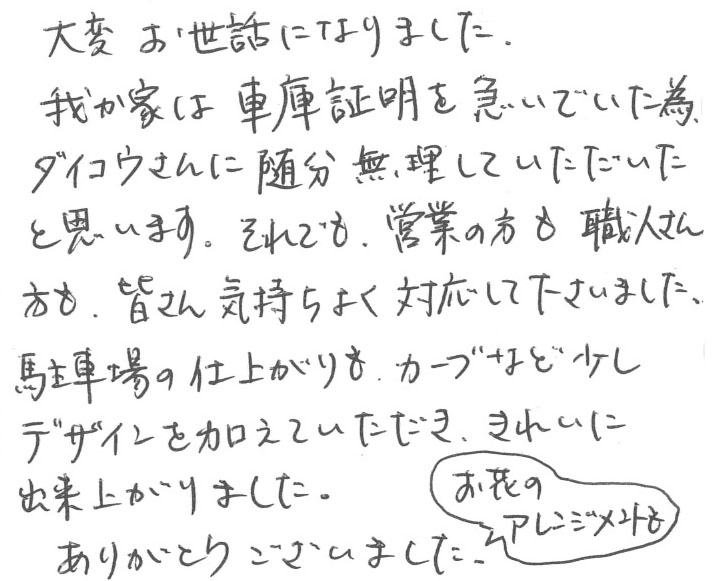 大変お世話になりました.
我が家は車庫証明を急いでいた為、
ダイコウさんに随分無理していただいた
と思います。それでも、営業の方も職人さん
方も、皆さん気持ちよく対応して下さいました、
駐車場の仕上がりも、カーブなど少し
デザインを加えていただき、きれいに
出来上がりました。
お花の
アレンジメントも
ありがとうございました。